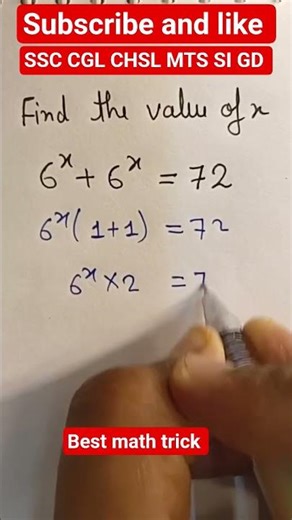 Subscribe and like
SSC CGL CHSL MTS SI GD
Find the value of x
6ˣ + 6ˣ = 72
6ˣ ( 1+1 ) = 72
6ˣ × 2 = 7
Best math trick